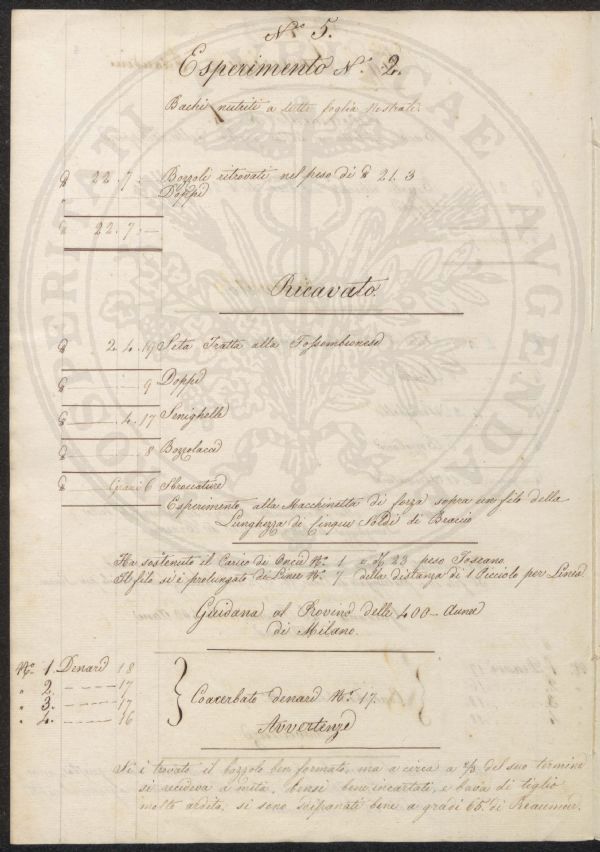 N.° 5.
Esperimento N.° 2.
Bachi nutriti a tutta foglia Nostrale.
℔ 22.7.- Bozzoli ritrovati nel peso di ℔ 21.3
Doppi
℔ 22.7.-
Ricavato.
℔ 2.4.19 Seta Tratta alla Fossombronese
℔ 9 Doppi
℔ 4.17 Senighelle
℔ 8 Bozzolacci
℔ Grani 6 Sbroccature
Esperimento alla Macchinetta di forza sopra un filo della
Lunghezza di Cinque Soldi di Bracio
Ha sostenuto il Carico de Oncie N.° 1 e 23 peso Toscano.
Il filo si è prolungato di Linee N.° 7 della distanza di 1 Picciolo per Linea
Guidana al Provino delle 400 - Aune
di Milano.
N.° 1. Denari 18
" 2. ———17
" 3. ———17
" 4. ———16
Coacerbato denari N.° 17.
Avvertenze
Si è trovato il bozzolo ben formato, ma a circa a del suo termine
si recideva a metà. bensì bene incartati, e bava di tiglio
molto ardita; si sono svipanati bene a gradi 65. di Reaumur.
OSPERITATI PUBLICAE AUGENDAE